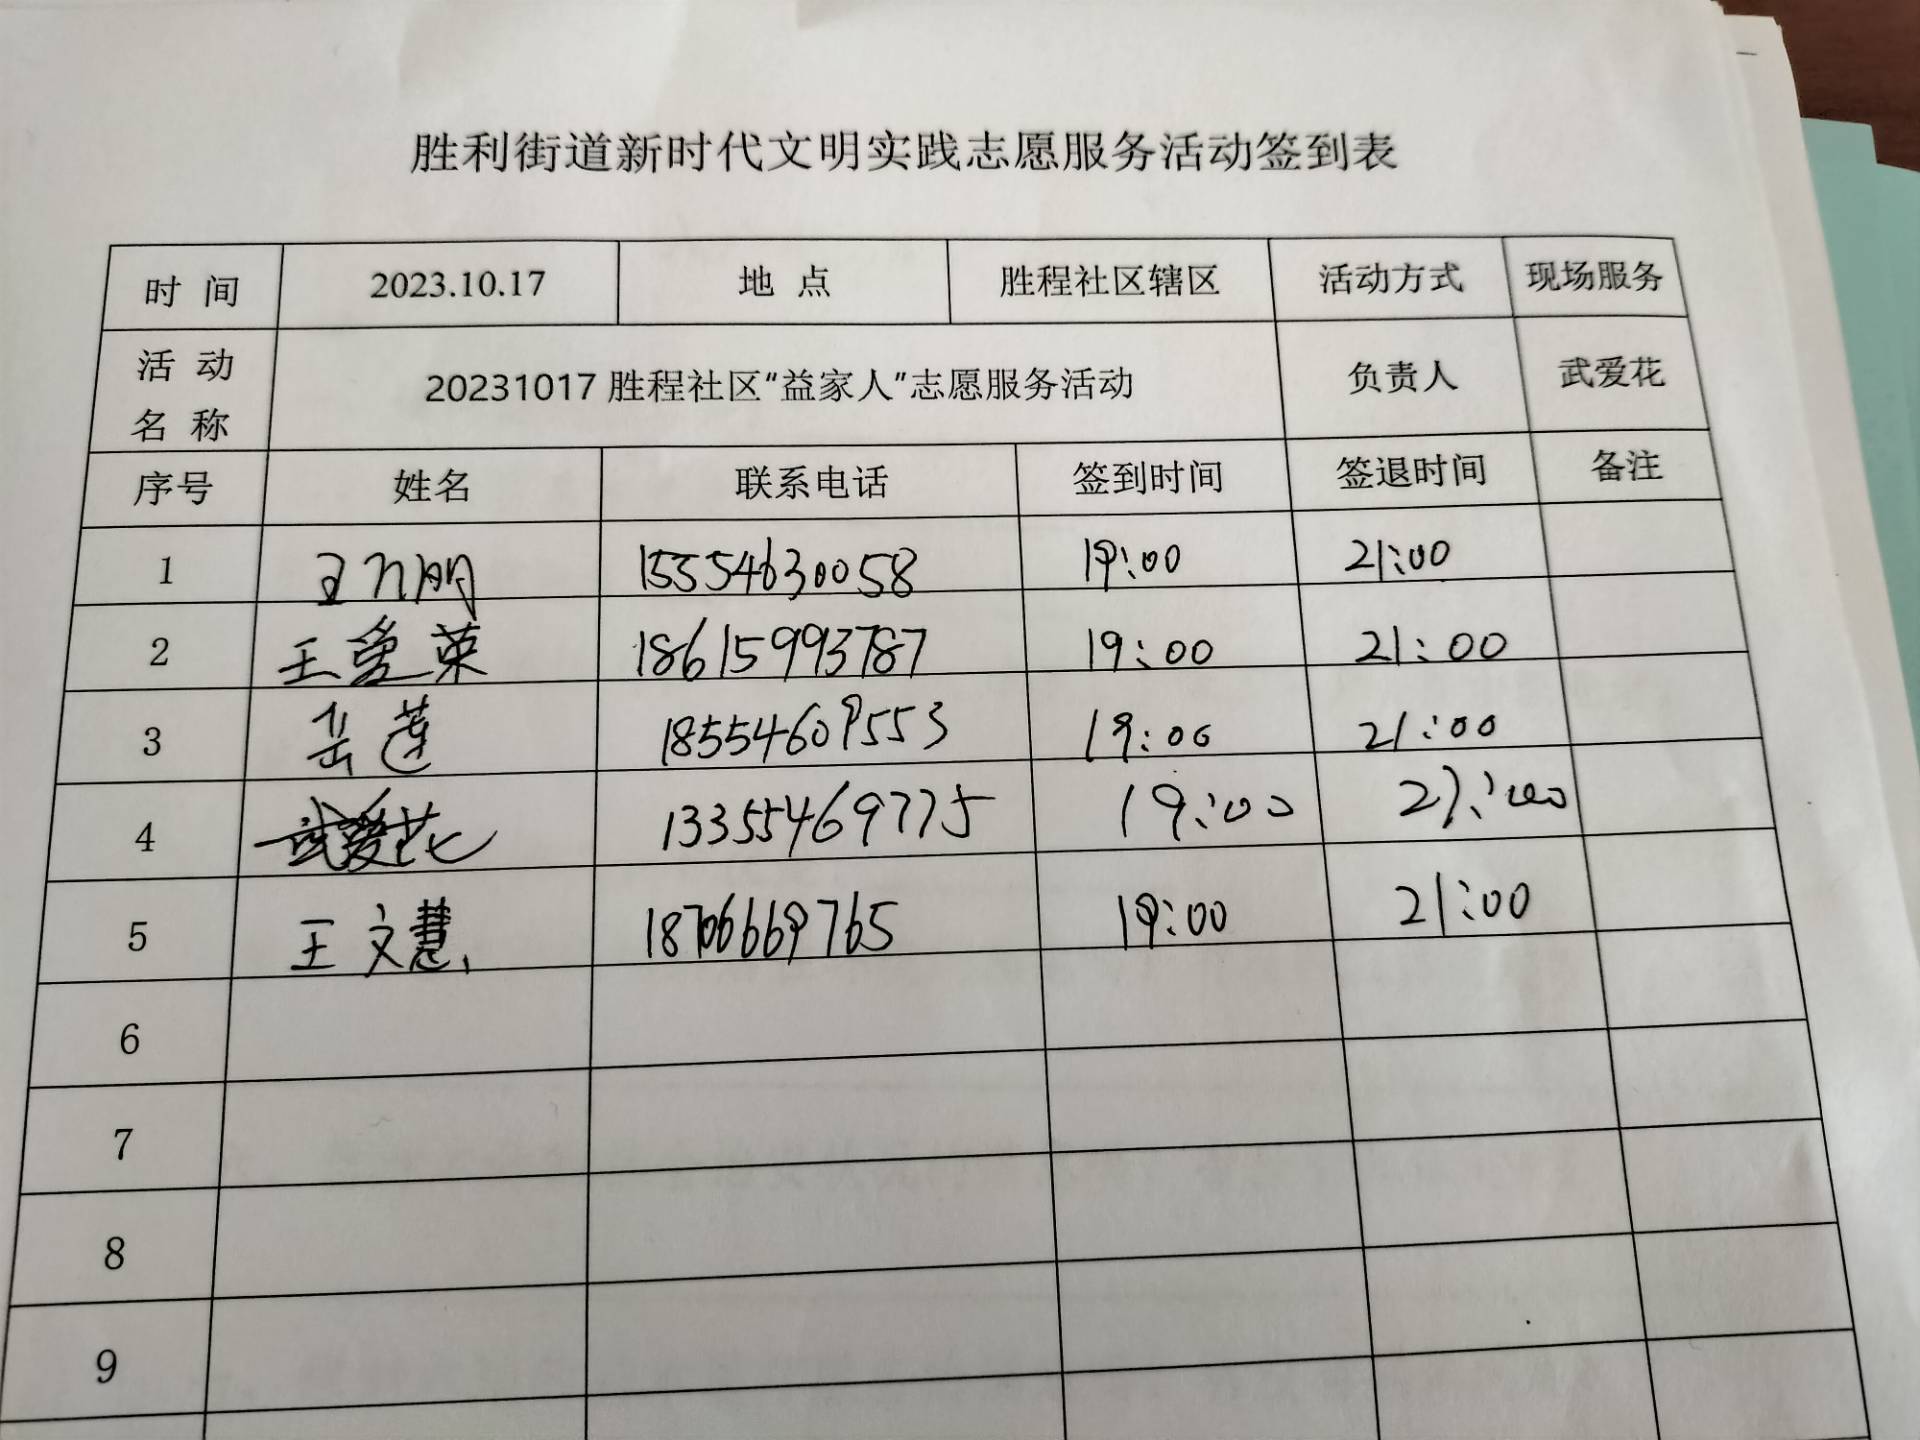 胜利街道新时代文明实践志愿服务活动签到表
时 间 2023.10.17 地 点 胜程社区辖区 活动方式 现场服务
活 动
名 称 20231017胜程社区“益家人”志愿服务活动 负责人 武爱花
序号 姓名 联系电话 签到时间 签退时间 备注
1 15554630058 19:00 21:00
2 王爱英 18615993787 19:00 21:00
3 岳莲 18554609553 19:00 21:00
4 武爱花 13355469775 19:00 21:00
5 王文慧 18706669765 19:00 21:00
6
7
8
9